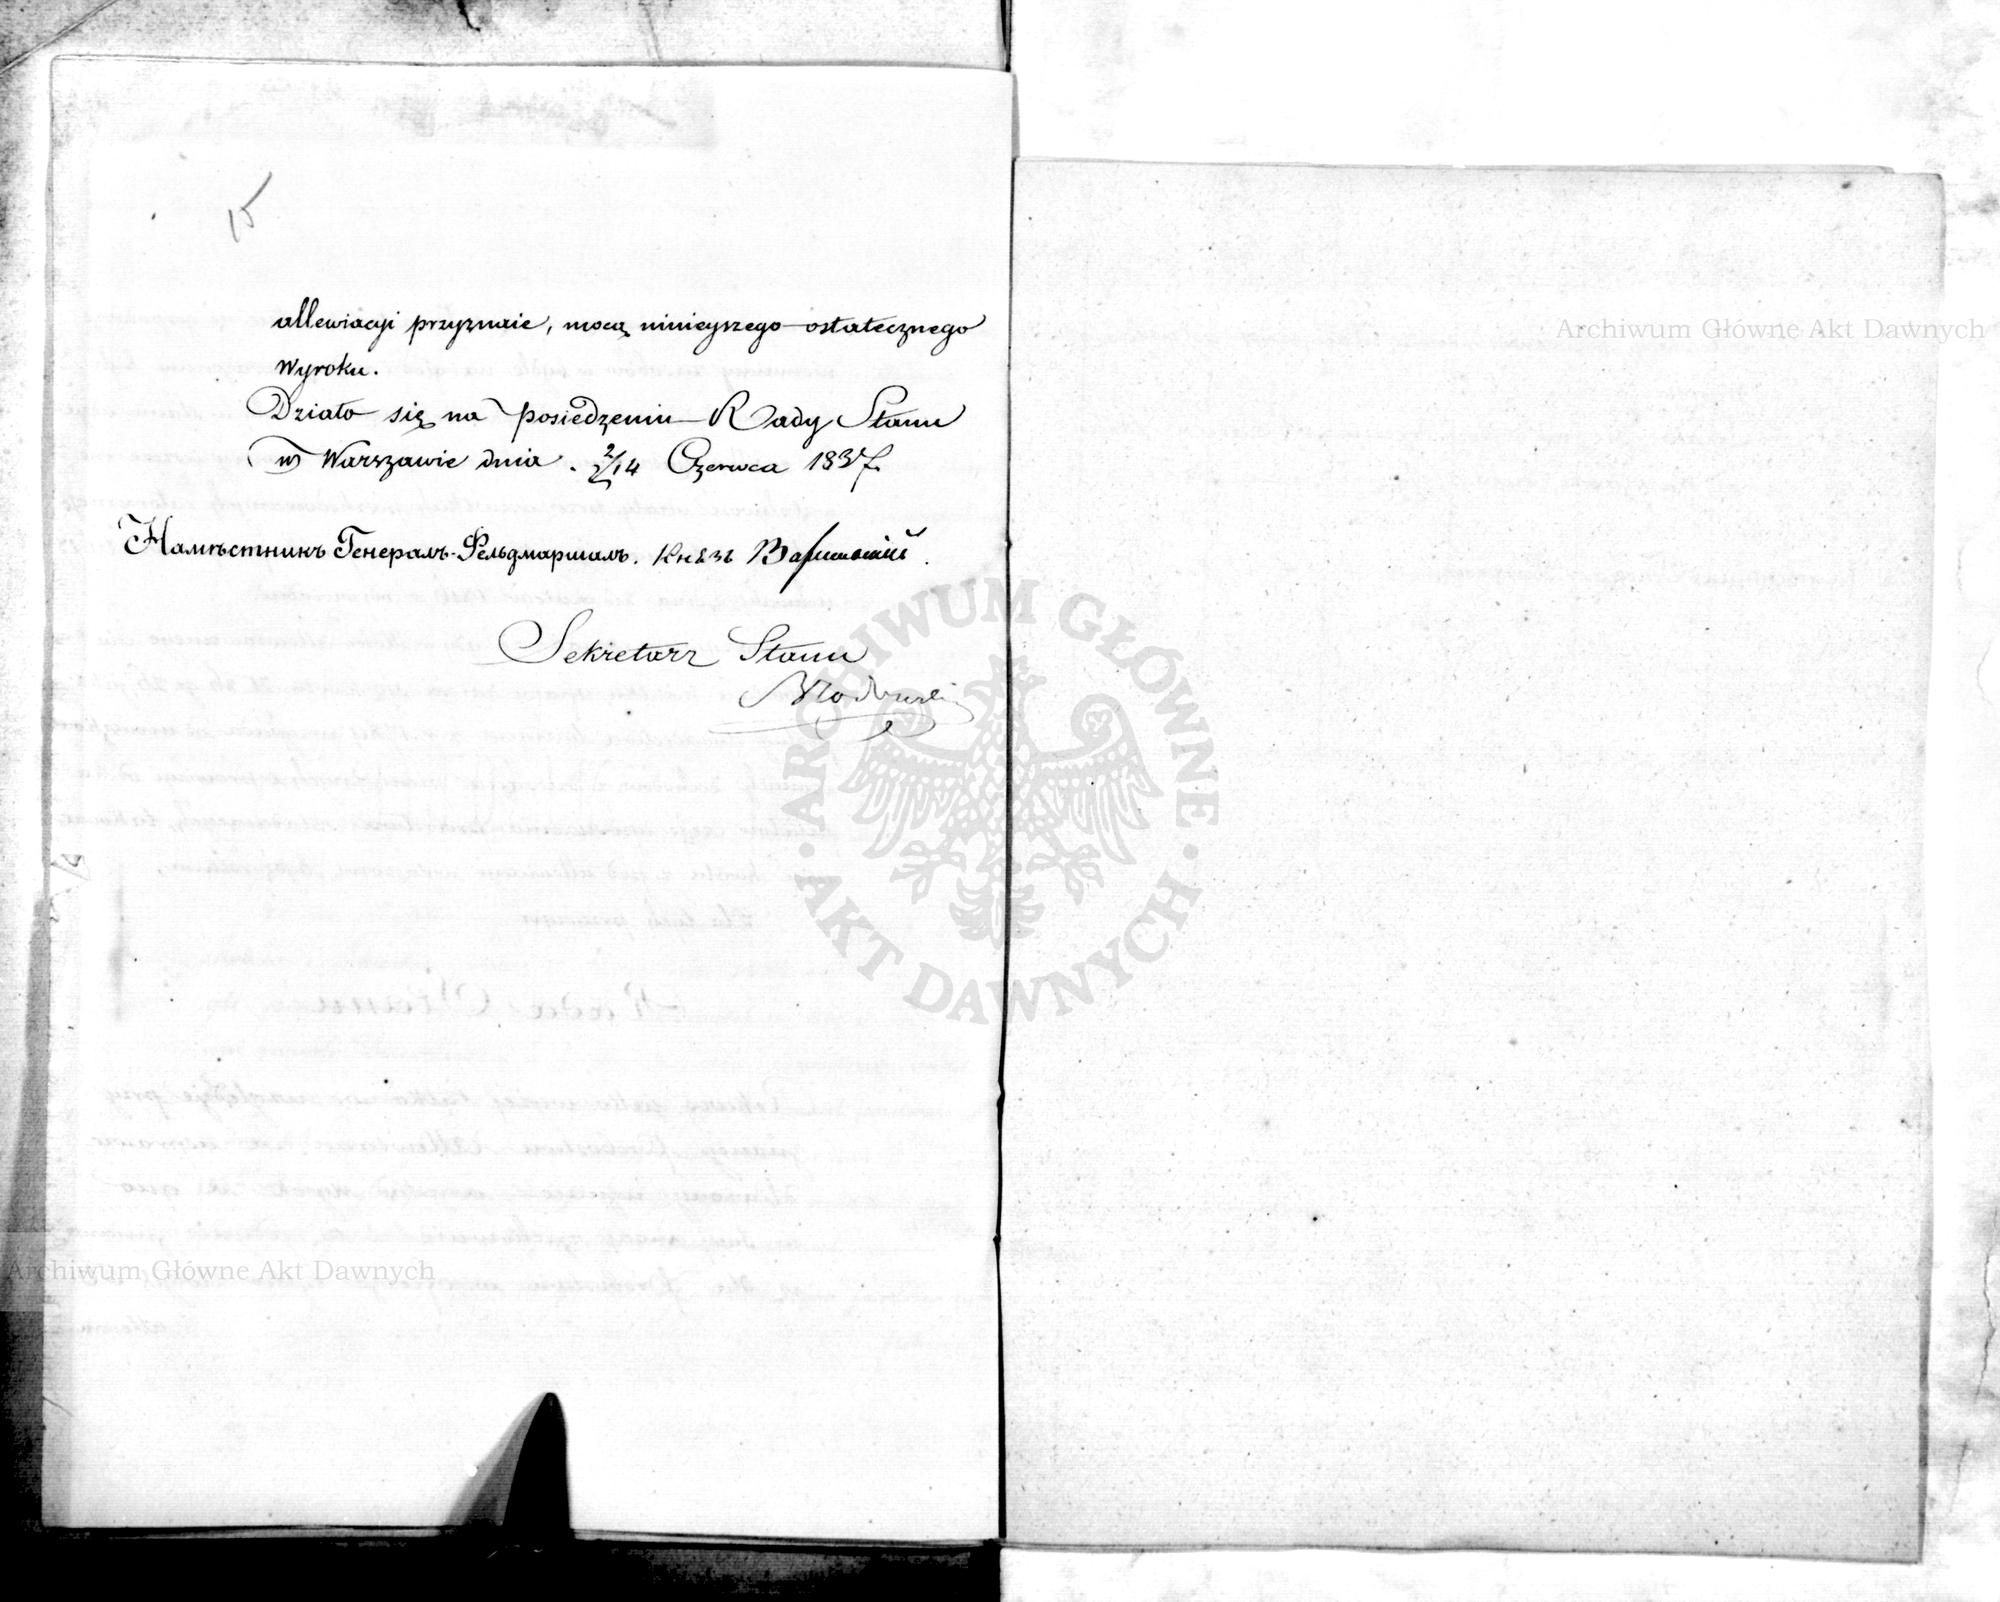 15
allewiacyi przyznaie, mocą ninieyszego ostatecznego
wyroku.
Działo się na posiedzeniu Rady Stanu
w Warszawie dnia 2/14 Czerwca 1837.
Намѣстникъ Генералъ-Фельдмаршалъ. Князь Варшавскій.
Sekretarz Stanu
Archiwum Główne Akt Dawnych
ARCHIWUM GŁÓWNE · AKT DAWNYCH ·
Archiwum Główne Akt Dawnych